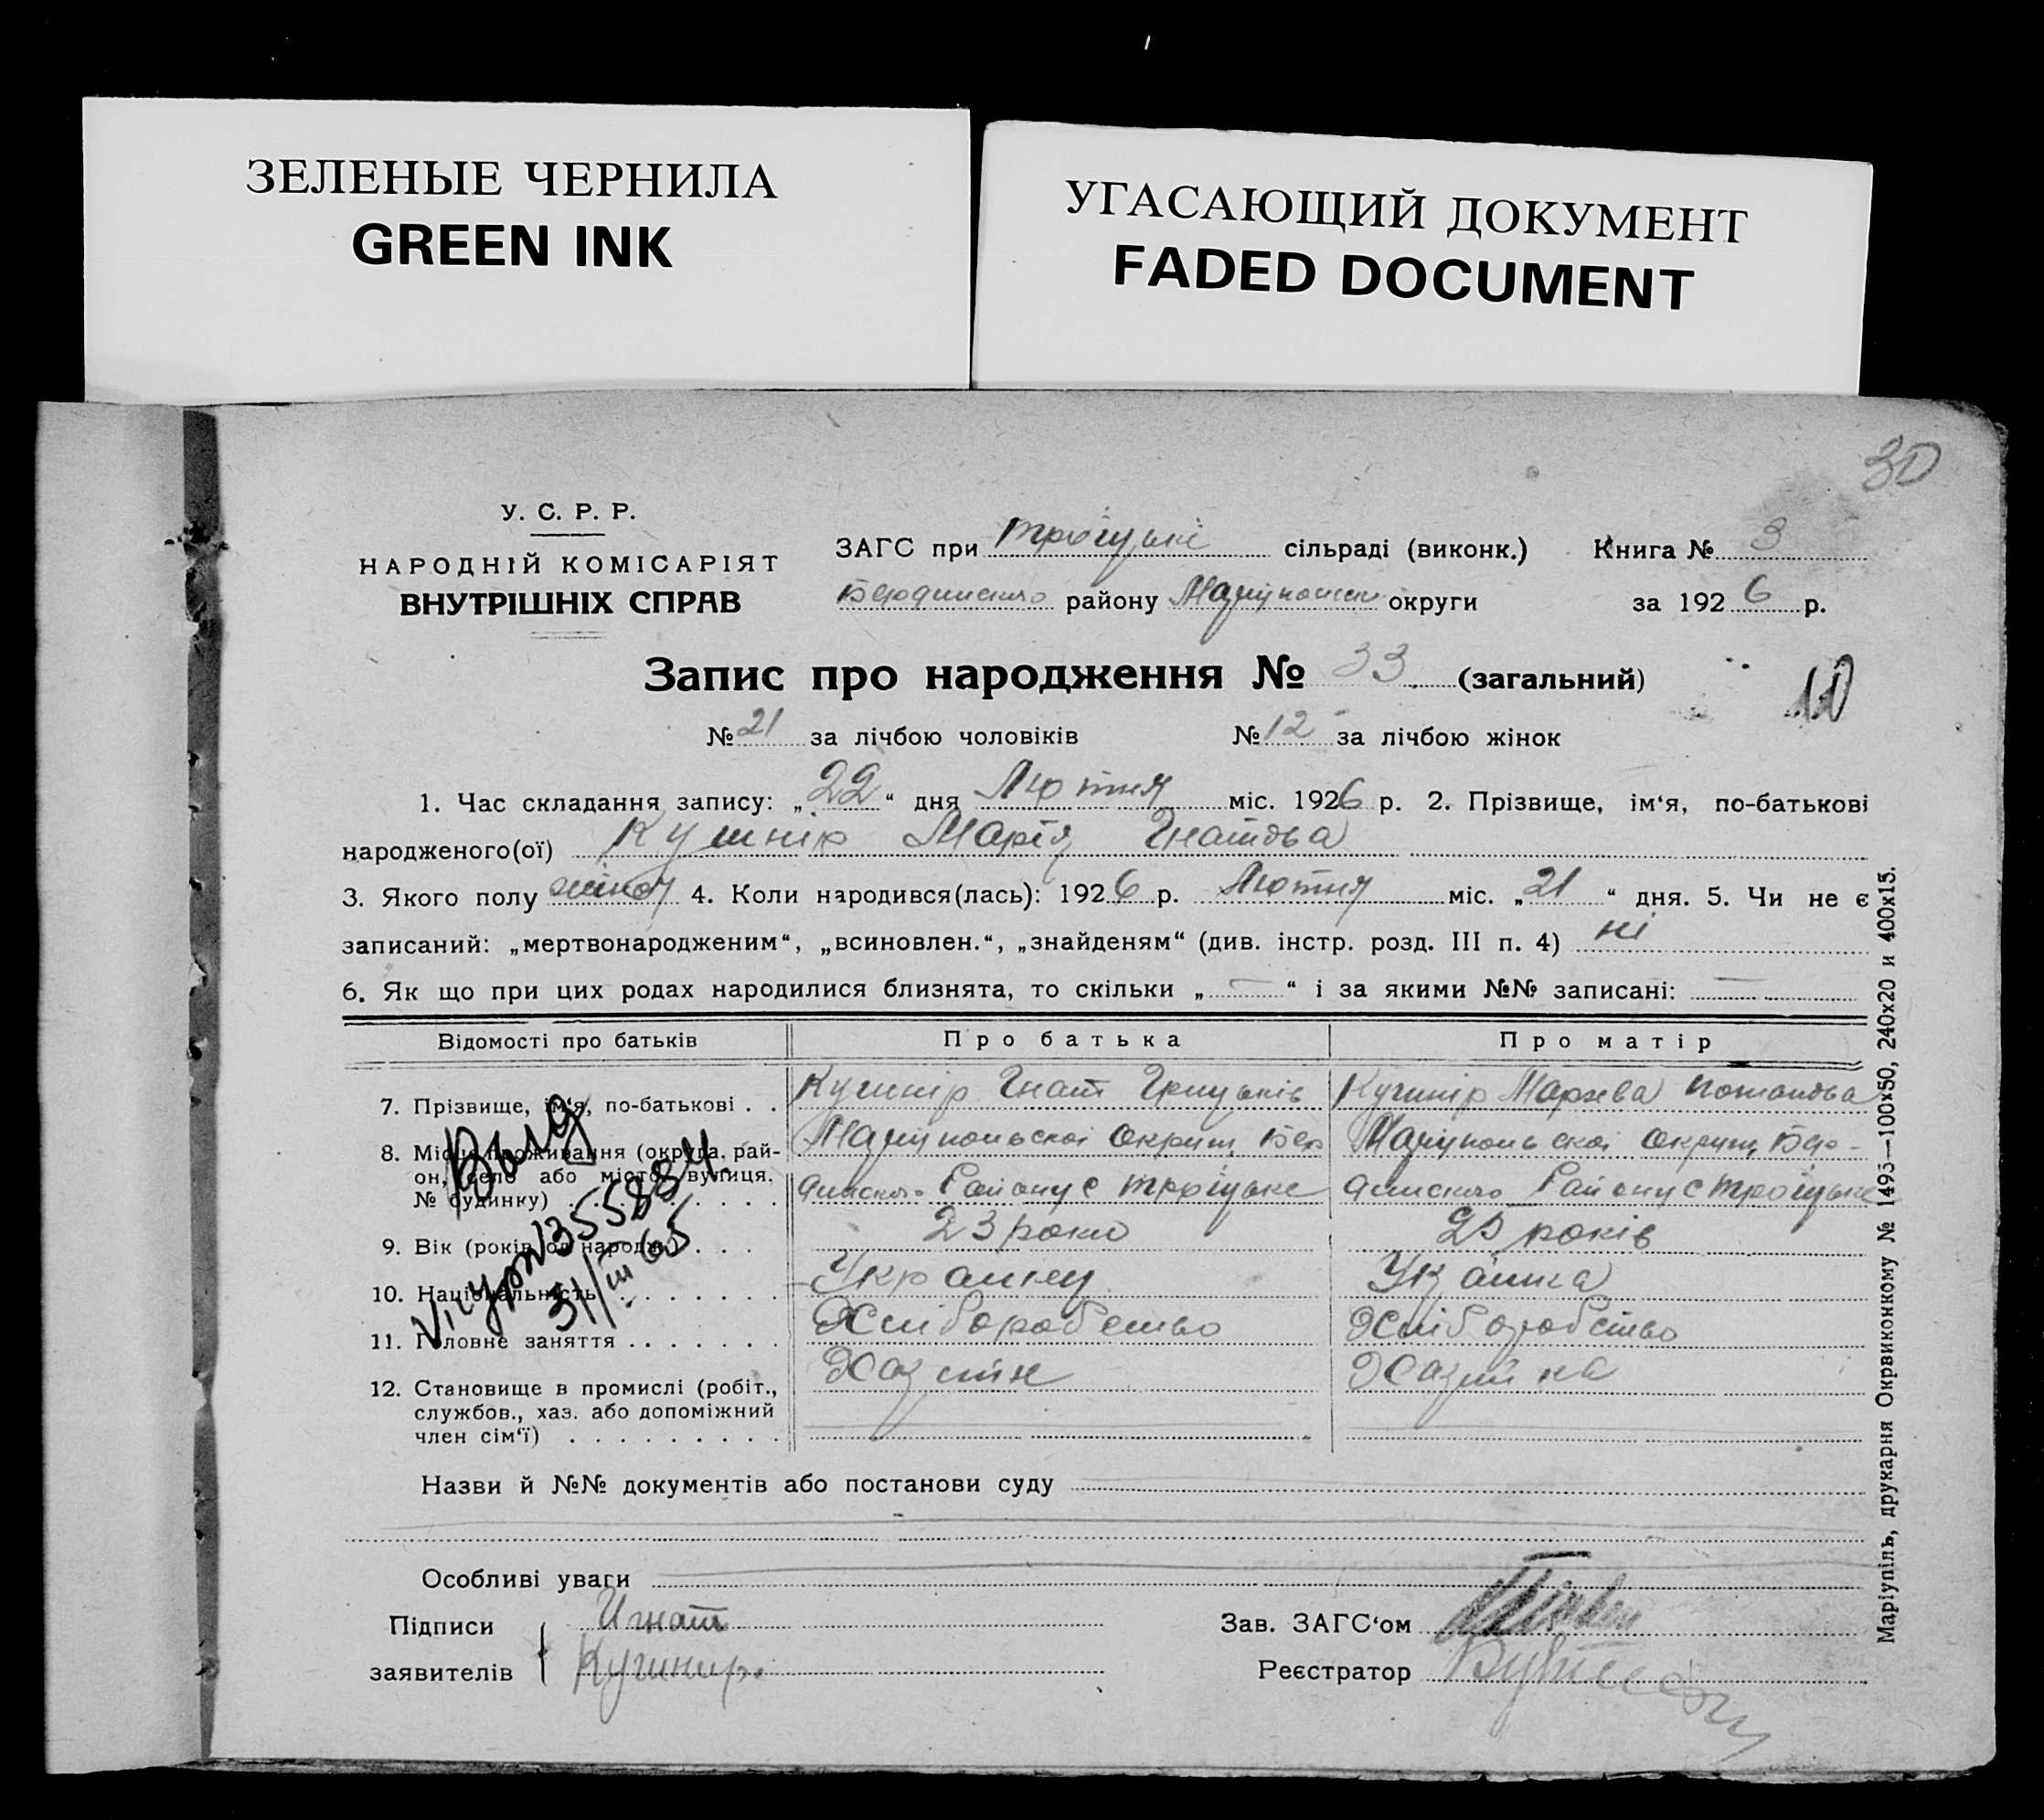 ЗЕЛЕНЫЕ ЧЕРНИЛА
GREEN INK
УГАСАЮЩИЙ ДОКУМЕНТ
FADED DOCUMENT
30
У. С. Р. Р.
НАРОДНІЙ КОМІСАРІЯТ
ВНУТРІШНІХ СПРАВ
ЗАГС при Троїцькі сільраді (виконк.) Книга № 3
району округи за 1926 р.
Запис про народження № 33. (загальний)
10
№ 21 за лічбою чоловіків № 12 за лічбою жінок
1. Час складання запису: „22“ дня Лютня міс. 1926 р. 2. Прізвище, ім‘я, по-батькові
народженого(ої) Кушнір Марія Гнатова
3. Якого полу жіноч 4. Коли народився(лась): 1926 р. Лютня міс. „21“ дня. 5. Чи не є
записаний: „мертвонародженим“, „всиновлен.“, „знайденям“ (див. інстр. розд. III п. 4) ні
6. Як що при цих родах народилися близнята, то скільки „—“ і за якими №№ записані: —
Відомості про батьків Про батька Про матір
7. Прізвище, ім‘я, по-батькові . . Кушнір Гнат Грицьків Кушнір
8. Місце проживання (округа, рай- Маріупольскої Округи, Бер Маріупольскої Округи, Бер-
он, село або місто, вулиця. дянского Району с Троїцьке дянского Району с Троїцьке
№ будинку)
9. Вік (років од народж.) . . . 23 роки 25 років
10. Національність . . . . . . . Українец Українка
11. Головне заняття . . . . . . . Хліборобство Хліборобство
12. Становище в промислі (робіт., Хазяїн Хазяйка
службов., хаз. або допоміжний
член сім‘ї) . . . . . . . . .
Выд
V-ІІ ур № 355884.
31/III 65
Назви й №№ документів або постанови суду
Особливі уваги
Підписи Игнат Зав. ЗАГС‘ом
заявителів Кушнир. Реєстратор
Маріупіль, друкарня Окрвиконкому № 1493—100×50, 240×20 и 400×15.